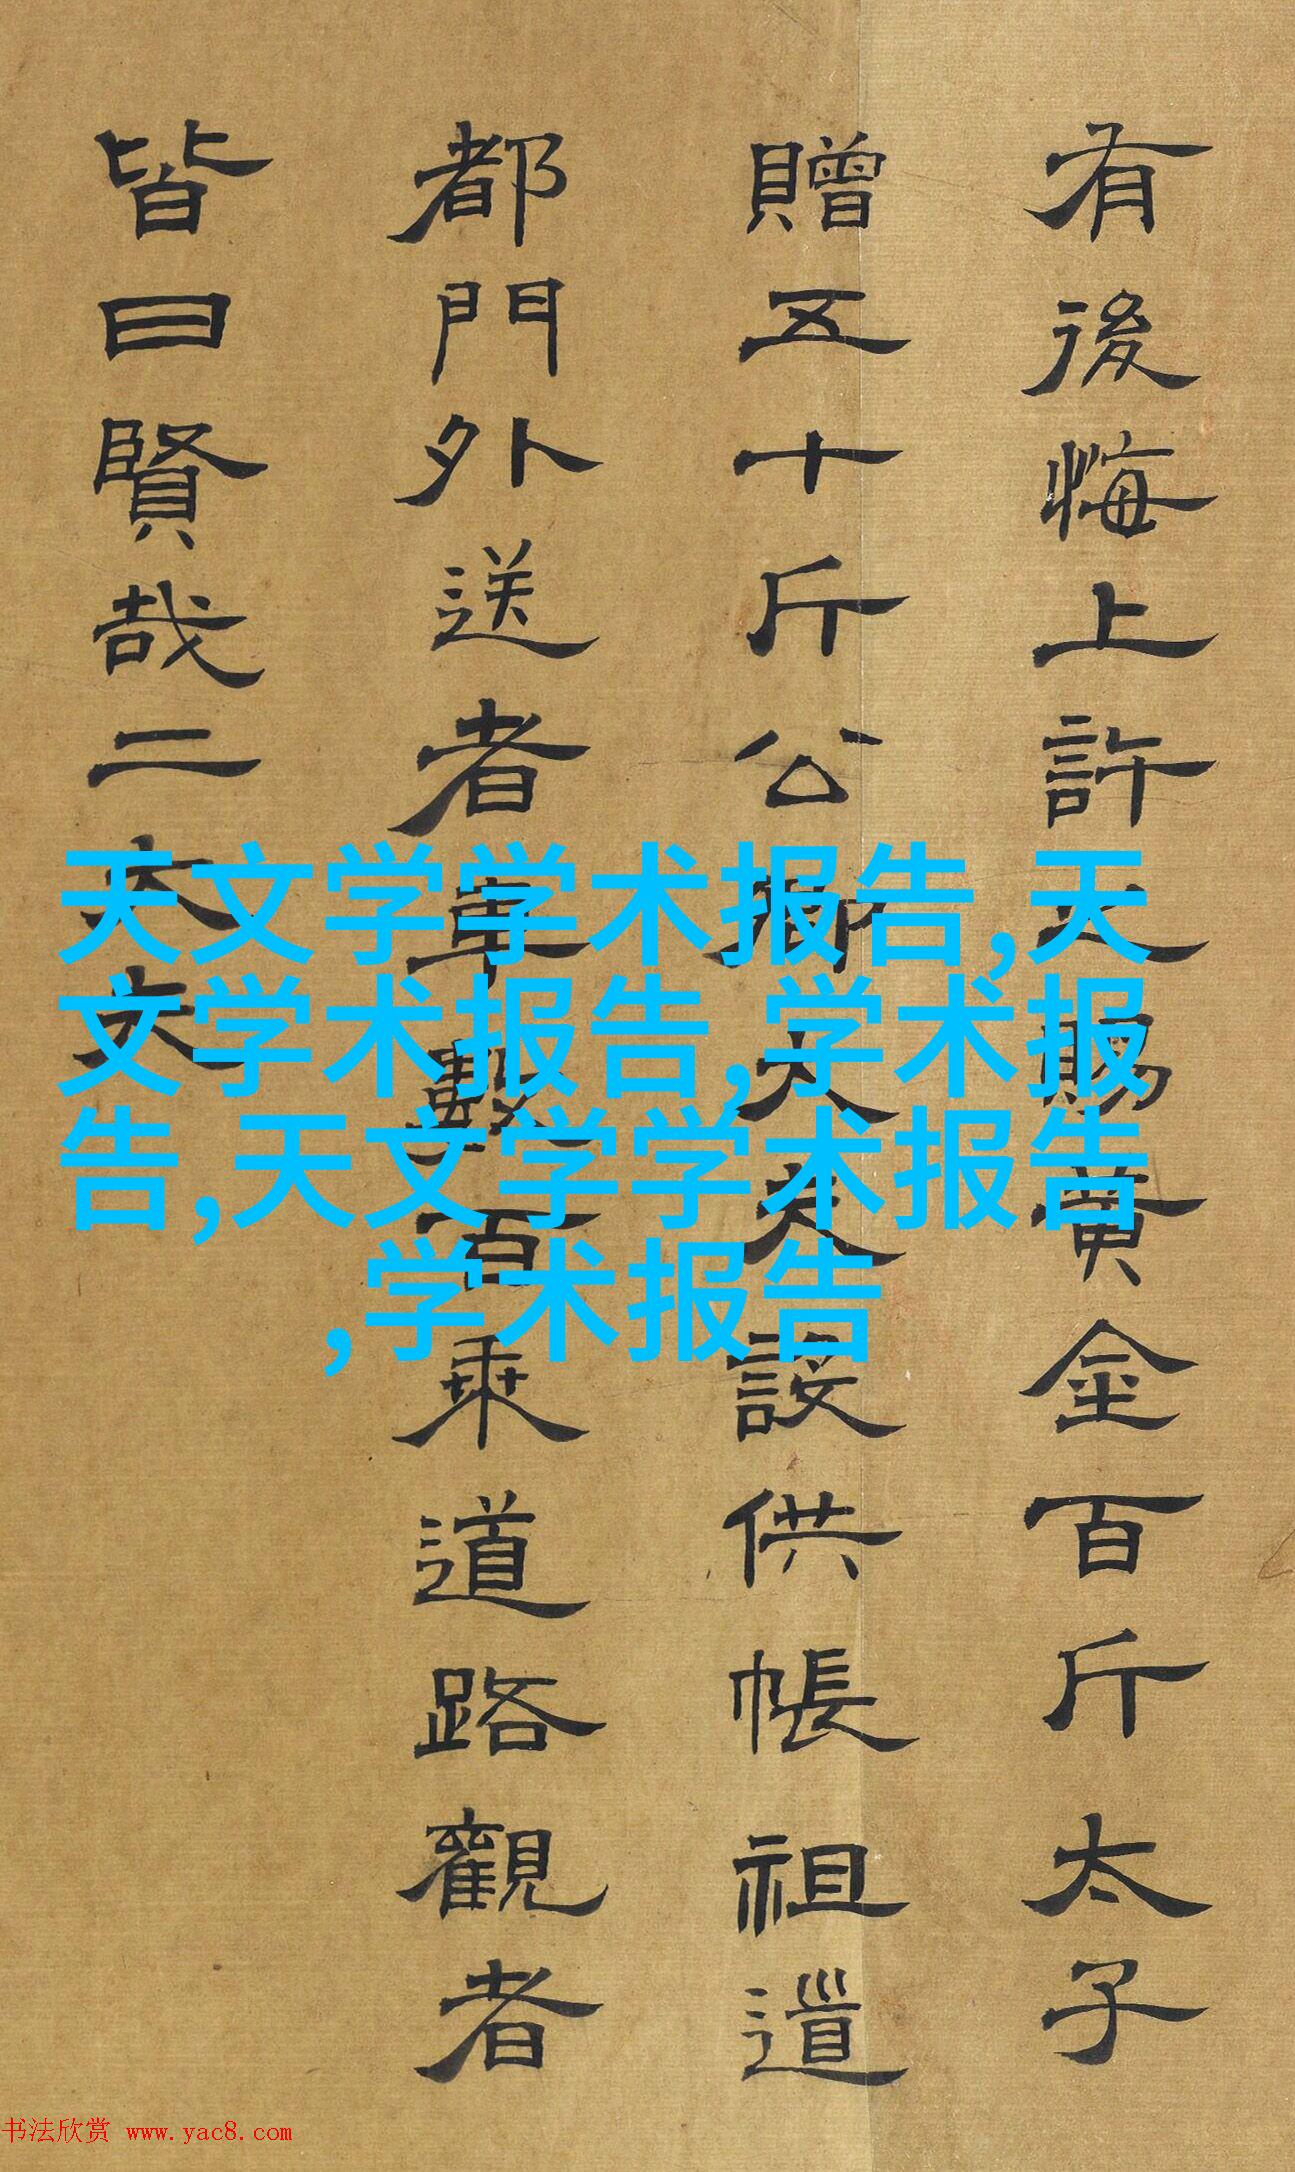 有後悔上許之賜黃金百斤太子
贈五十斤公卿大夫設供帳祖道
都門外送者車數百乘道路觀者
皆曰賢哉二大夫
天文学学术报告,天
文学术报告,学术报
告,天文学学术报告
,学术报告
书法欣赏 www.yac8.com